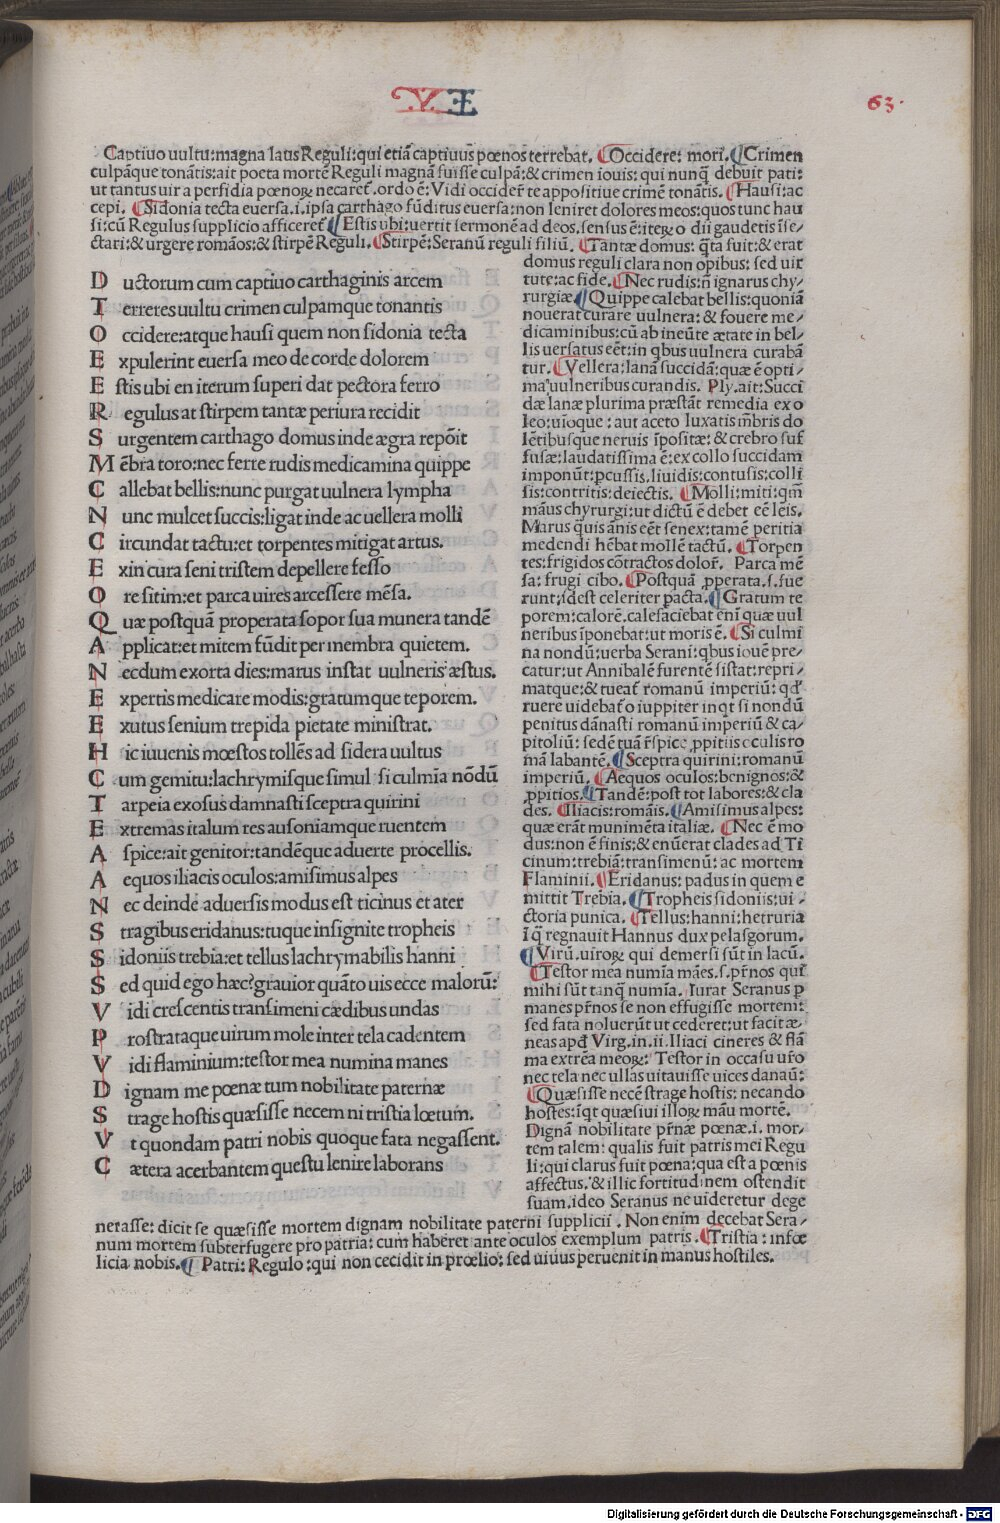 .V. VI
63.
Captiuo uultu: magna laus Reguli: qui etiā captiuus pœnos terrebat. ¶Occidere: mori. ¶Crimen
culpāque tonātis: ait poeta mortē Reguli magnā fuisse culpā: & crimen iouis: qui nunq̄ debuit pati:
ut tantus uir a perfidia pœnoꝝ necaret̄. ordo ē: Vidi occider̄ te appositiue crimē tonātis. ¶Hausi: ac
cepi. ¶Sidonia tecta euersa .i. ipsa carthago fūditus euersa: non leniret dolores meos: quos tunc hau
si: cū Regulus supplicio afficeret̄ ¶Estis ubi: uertit sermonē ad deos. sensus ē: iteꝝ o dii gaudetis īse/
ctari: & urgere romāos: & stirpē Reguli. ¶Stirpē: Seranū reguli filiū. ¶Tantæ domus: q̄ta fuit: & erat
D uctorum cum captiuo carthaginis arcem
T erreres uultu crimen culpamque tonantis
O ccidere: atque hausi quem non sidonia tecta
E xpulerint euersa meo de corde dolorem
E stis ubi en iterum superi dat pectora ferro
R egulus at stirpem tantæ periura recidit
S urgentem carthago domus inde ægra repōit
M ēbra toro: nec ferre rudis medicamina quippe
C allebat bellis: nunc purgat uulnera lympha
N unc mulcet succis: ligat inde ac uellera molli
C ircundat tactu: et torpentes mitigat artus.
E xin cura seni tristem depellere fesso
O re sitim: et parca uires arcessere mēsa.
Q uæ postquā properata sopor sua munera tandē
A pplicat: et mitem fūdit per membra quietem.
N ecdum exorta dies: marus instat uulneris æstus.
E xpertis medicare modis: gratumque teporem.
E xutus senium trepida pietate ministrat.
H ic iuuenis mœstos tollēs ad sidera uultus
C um gemitu: lachrymisque simul si culmīa nōdū
T arpeia exosus damnasti sceptra quirini
E xtremas italum res ausoniamque ruentem
A spice: ait genitor: tandēque aduerte procellis.
A equos iliacis oculos: amisimus alpes
N ec deinde aduersis modus est ticinus et ater
S tragibus eridanus: tuque insignite tropheis
S idoniis trebia: et tellus lachrymabilis hanni
S ed quid ego hæc? grauior quāto uis ecce malorū:
V idi crescentis transimeni cædibus undas
P rostrataque uirum mole inter tela cadentem
V idi flaminium: testor mea numina manes
D ignam me pœnæ tum nobilitate paternæ
S trage hostis quæsisse necem ni tristia lœtum.
V t quondam patri nobis quoque fata negassent.
C ætera acerbantem questu lenire laborans
domus reguli clara non opibus: sed uir
tute: ac fide. ¶Nec rudis: n̄ ignarus chy/
rurgiæ ¶Quippe calebat bellis: quoniā
nouerat curare uulnera: & fouere me/
dicaminibus: cū ab ineūte ætate in bel/
lis uersatus eēt: in qbus uulnera curabā
tur. ¶Vellera: lanā succidā: quæ ē opti/
ma uulneribus curandis. Ply. ait: Succi
dæ lanæ plurima præstāt remedia ex o
leo: uioque: aut aceto luxatis m̄bris do
lētibusque neruis īpositæ: & crebro suf
fusæ: laudatissima ē: ex collo succidam
imponūt: ꝑcussis. liuidis: contusis: colli
sis: contritis: deiectis. ¶Molli: miti: qm̄
māus chyrurgi: ut dictū ē debet eē lēis.
Marus quis ānis eēt senex: tamē peritia
medendi hēbat mollē tactū. ¶Torpen
tes: frigidos cōtractos dolor̄. Parca mē
sa: frugi cibo. ¶Postquā ꝓperata .s. fue
runt: idest celeriter pacta. ¶Gratum te
porem: calorē. calefaciebat eni̅ quæ uul
neribus īponebat: ut moris ē. ¶Si culmi
na nondū: uerba Serani: qbus iouē pre/
catur: ut Annibalē furentē sistat: repri/
matque: & tueat̄ romanū imperiū: qd̄
ruere uidebat̄ o iuppiter inqt si nondū
penitus dānasti romanū imperiū & ca/
pitoliū: sedē tuā r̄spice ꝓpitiis oculis ro
mā labantē. ¶Sceptra quirini: romanū
imperiū. ¶Aequos oculos: benignos: &
ꝓpitios. ¶Tandē: post tot labores: & cla
des. ¶Iliacis: romāis. ¶Amisimus alpes:
quæ erāt munimēta italiæ. ¶Nec ē mo
dus: non ē finis: & enūerat clades ad Ti
cinum: trebiā: transimenū: ac mortem
Flaminii. ¶Eridanus: padus in quem e
mittit Trebia. ¶Tropheis sidoniis: ui/
ctoria punica. ¶Tellus: hanni: hetruria
ī q̄ regnauit Hannus dux pelasgorum.
¶Virū. uiroꝝ qui demersi sūt in lacū.
¶Testor mea numīa māes .s. pr̄nos qui
mihi sūt tanq̄ numīa. Iurat Seranus ꝑ
manes pr̄nos se non effugisse mortem:
sed fata noluerūt ut cederet: ut facit æ.
neas apd̄ Virg. in .ii. Iliaci cineres & flā
ma extrēa meoꝝ: Testor in occasu ur̄o
nec tela nec ullas uitauisse uices danaū:
¶Quæsisse necē strage hostis: necando
hostes: īqt quæsiui illoꝝ māu mortē.
Dignā nobilitate pr̄næ pœnæ .i. mor/
tem talem: qualis fuit patris mei Regu
li: qui clarus fuit pœna: qua est a pœnis
affectus. & illic fortitudinem ostendit
suam. ideo Seranus ne uideretur dege
nerasse: dicit se quæsisse mortem dignam nobilitate paterni supplicii. Non enim decebat Sera/
num mortem subterfugere pro patria: cum haberet ante oculos exemplum patris. ¶Tristia: infœ
licia nobis. ¶Patri: Regulo: qui non cecidit in prœlio: sed uiuus peruenit in manus hostiles.
Digitalisierung gefördert durch die Deutsche Forschungsgemeinschaft - DFG